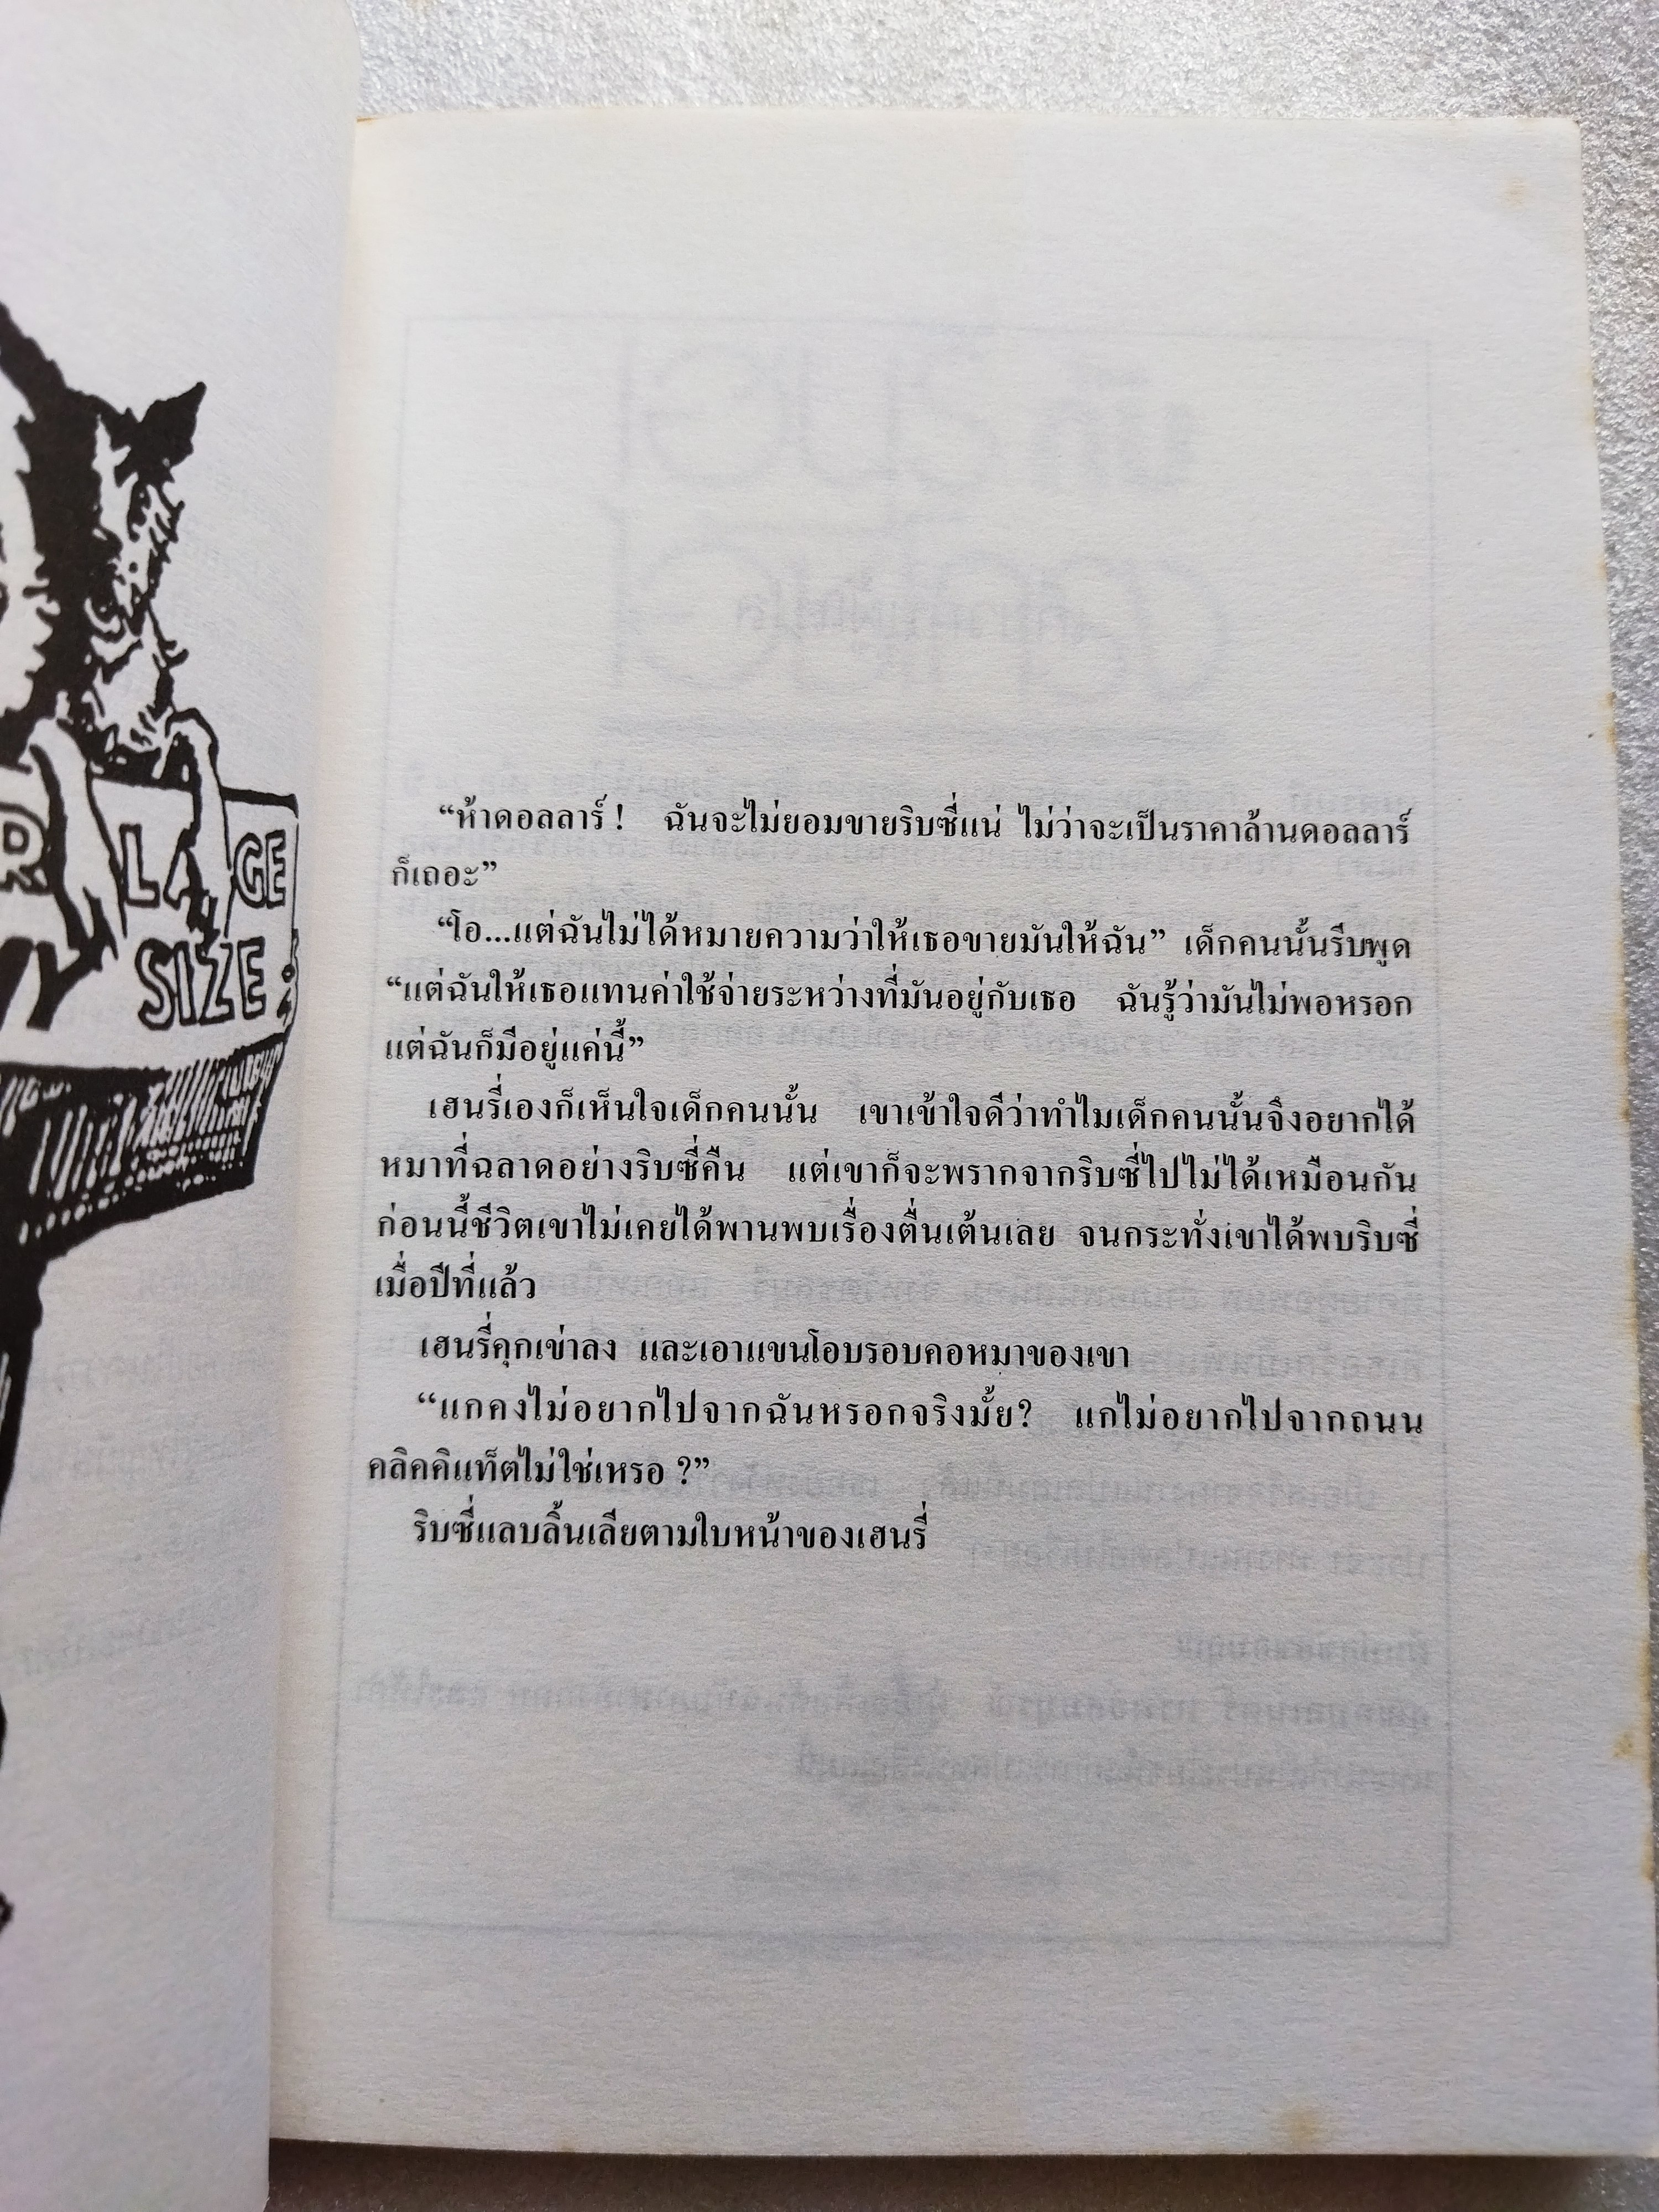 R LA GE
SIZE
“ห้าดอลลาร์ ! ฉันจะไม่ยอมขายริบซี่แน่ ไม่ว่าจะเป็นราคาล้านดอลลาร์
ก็เถอะ”
“โอ...แต่ฉันไม่ได้หมายความว่าให้เธอขายมันให้ฉัน” เด็กคนนั้นรีบพูด
“แต่ฉันให้เธอแทนค่าใช้จ่ายระหว่างที่มันอยู่กับเธอ ฉันรู้ว่ามันไม่พอหรอก
แต่ฉันก็มีอยู่แค่นี้”
เฮนรี่เองก็เห็นใจเด็กคนนั้น เขาเข้าใจดีว่าทำไมเด็กคนนั้นจึงอยากได้
หมาที่ฉลาดอย่างริบซี่คืน แต่เขาก็จะพรากจากริบซี่ไปไม่ได้เหมือนกัน
ก่อนนี้ชีวิตเขาไม่เคยได้พานพบเรื่องตื่นเต้นเลย จนกระทั่งเขาได้พบริบซี่
เมื่อปีที่แล้ว
เฮนรี่คุกเข่าลง และเอาแขนโอบรอบคอหมาของเขา
“แกคงไม่อยากไปจากฉันหรอกจริงมั้ย? แกไม่อยากไปจากถนน
คลิคคิแท็ตไม่ใช่เหรอ ?”
ริบซี่แลบลิ้นเลียตามใบหน้าของเฮนรี่